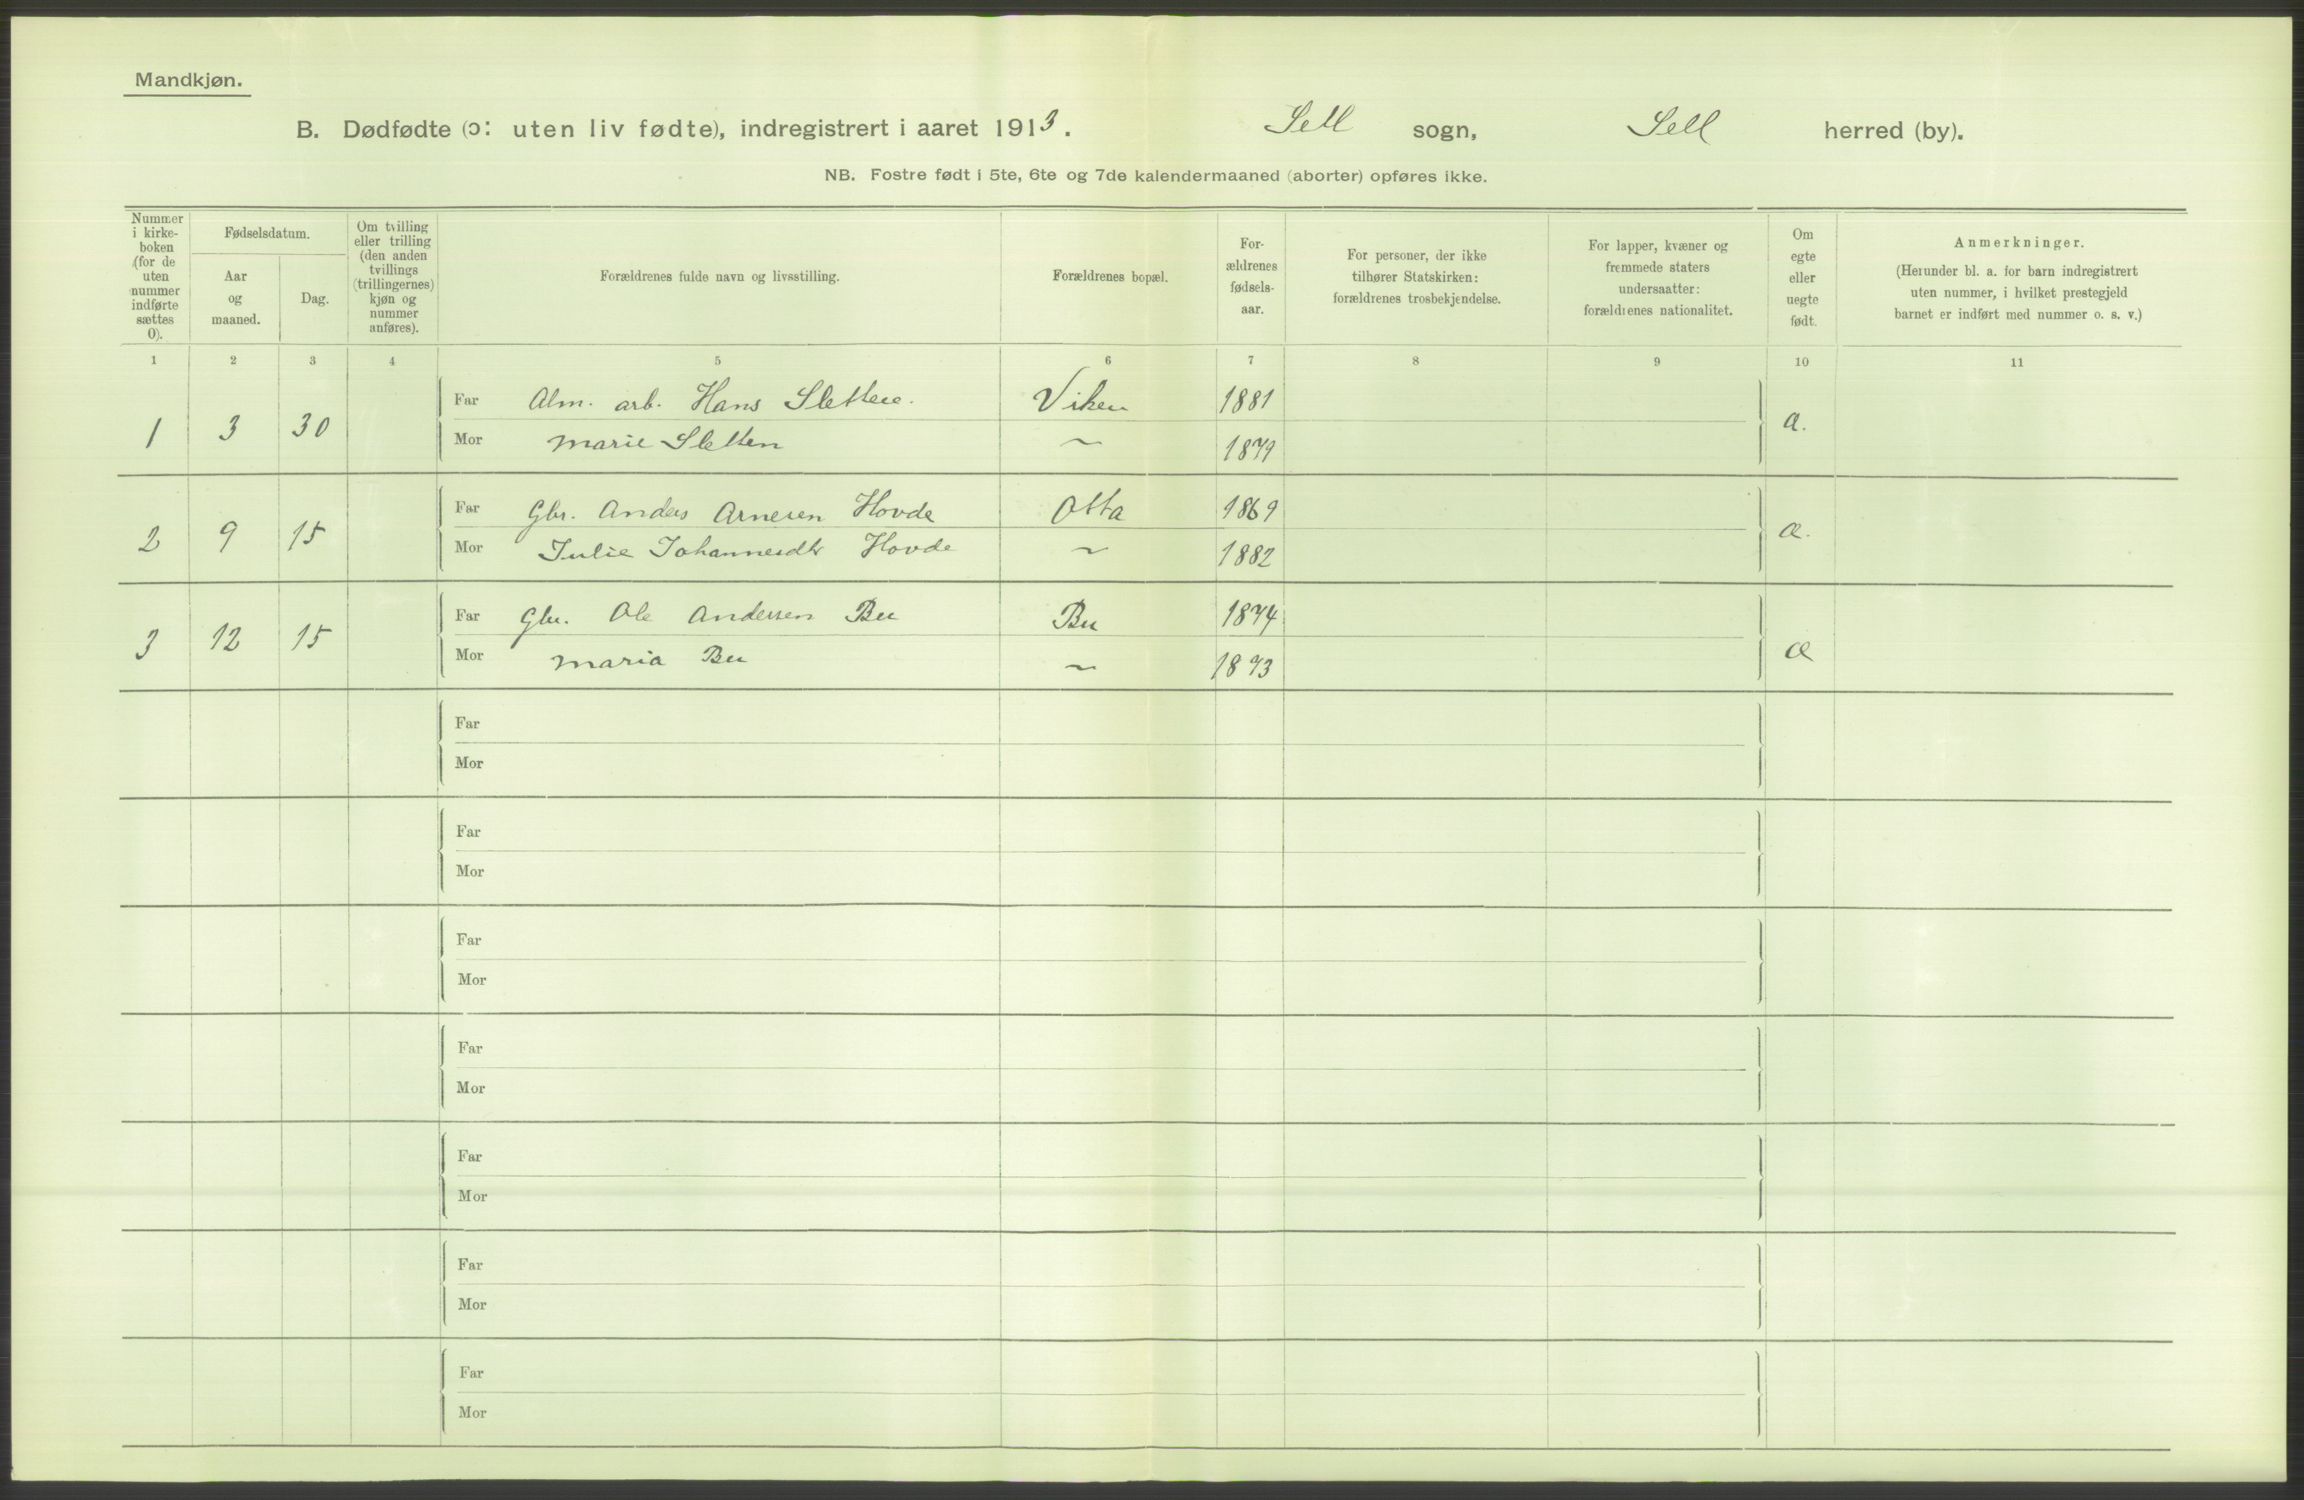 Mandkjøn.
B. Dødfødte (ɔ: uten liv fødte), indregistrert i aaret 1913. Sell sogn, Sell herred (by).
NB. Fostre født i 5te, 6te og 7de kalendermaaned (aborter) opføres ikke.
Nummer i kirke-boken (for de uten nummer indførte sættes 0).
Fødselsdatum.
Aar og maaned.
Dag.
Om tvilling eller trilling (den anden tvillings (trillingernes) kjøn og nummer anføres).
Forældrenes fulde navn og livsstilling.
Forældrenes bopæl.
For-ældrenes fødsels-aar.
For personer, der ikke tilhører Statskirken: forældrenes trosbekjendelse.
For lapper, kvæner og fremmede staters undersaatter: forældrenes nationalitet.
Om egte eller uegte født.
Anmerkninger.
(Herunder bl. a. for barn indregistrert uten nummer, i hvilket prestegjeld barnet er indført med nummer o. s. v.)
1 2 3 4 5 6 7 8 9 10 11
1 3 30 Far Alm. arb. Hans Sletten. Viken 1881 a.
Mor Marie Sletten ~ 1879
2 9 15 Far Gbr. Anders Arnesen Hovde Otta 1869 a.
Mor Julie Johannesdtr Hovde ~ 1882
3 12 15 Far Gbr. Ole Andersen Bu Bu 1874 a
Mor Maria Bu ~ 1873
Far
Mor
Far
Mor
Far
Mor
Far
Mor
Far
Mor
Far
Mor
Far
Mor